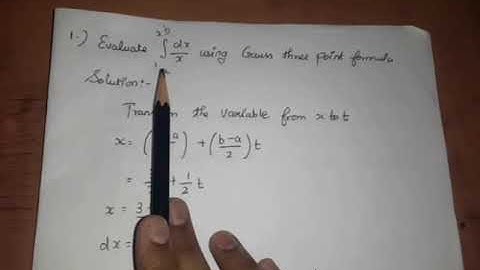 1.) Evaluate ∫ dx/x using Gauss three point formula
Solution:-
the variable from x to t
x = ( a/ ) + (b-a/2) t
= + 1/2 t
x = 3
dx =